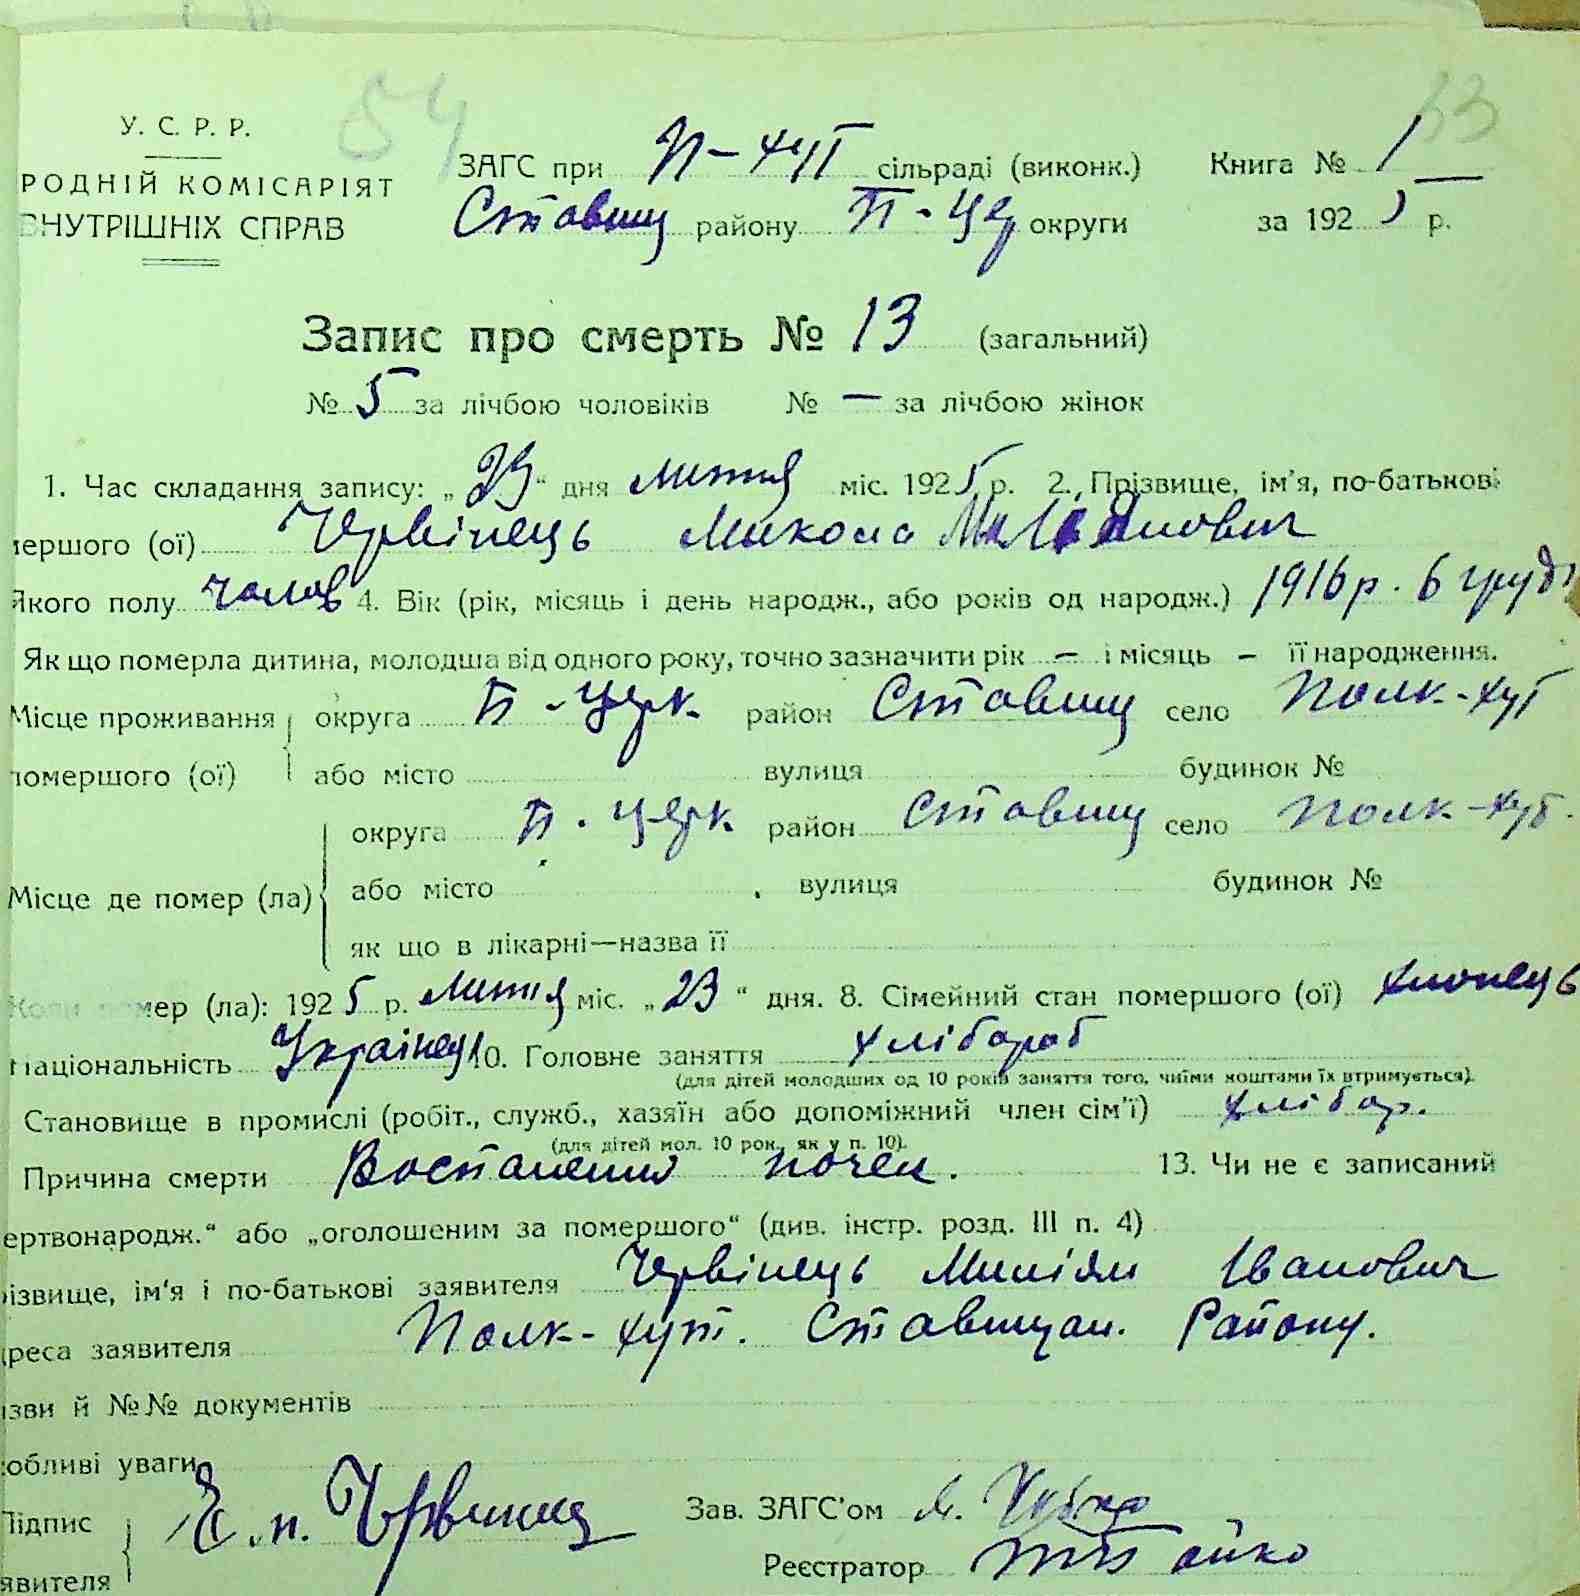 54 33
У. С. Р. Р.
РОДНІЙ КОМІСАРІЯТ
ВНУТРІШНІХ СПРАВ
ЗАГС при П-хут сільраді (виконк.) Книга № 1
Ставищ району Б-Цер округи за 192 р.
Запис про смерть № 13 (загальний)
№ 5 за лічбою чоловіків № — за лічбою жінок
1. Час складання запису: „23“ дня лютня міс. 1925 р. 2. Прізвище, ім'я, по-батькові
мершого (ої) Червінець Микола
Якого полу чолов 4. Вік (рік, місяць і день народж., або років од народж.) 1916 р. 6 груд
Як що померла дитина, молодша від одного року, точно зазначити рік — і місяць – її народження.
Місце проживання округа Б-Церк район Ставищ село Полк-хут
помершого (ої) або місто вулиця будинок №
округа Б. Церк район Ставищ село Полк-хут.
Місце де помер (ла) або місто вулиця будинок №
як що в лікарні—назва її
Коли помер (ла): 1925 р. лютня міс. „23“ дня. 8. Сімейний стан помершого (ої) хлопець
Національність Українец 10. Головне заняття хлібороб
(для дітей молодших од 10 років заняття того, чиїми коштами їх втримується).
Становище в промислі (робіт., служб., хазяїн або допоміжний член сім'ї) хлібор.
(для дітей мол. 10 рок., як у п. 10).
Причина смерти Воспаления почек. 13. Чи не є записаний
ертвонародж.“ або „оголошеним за помершого“ (див. інстр. розд. III п. 4)
ізвище, ім'я і по-батькові заявителя Червінець Миліян Іванович
реса заявителя Полк-хут. Ставищан. Району.
ізви й №№ документів
обливі уваги
Підпис Зав. ЗАГС'ом
явителя Реєстратор